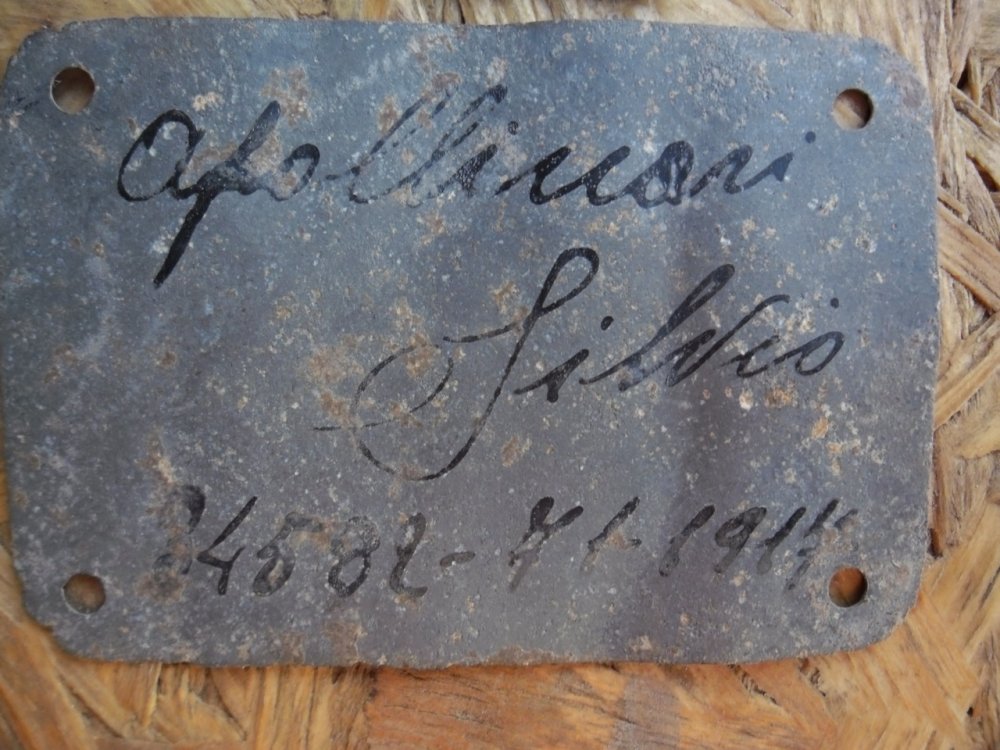 Apollinari
Silvio
24582-71-1914